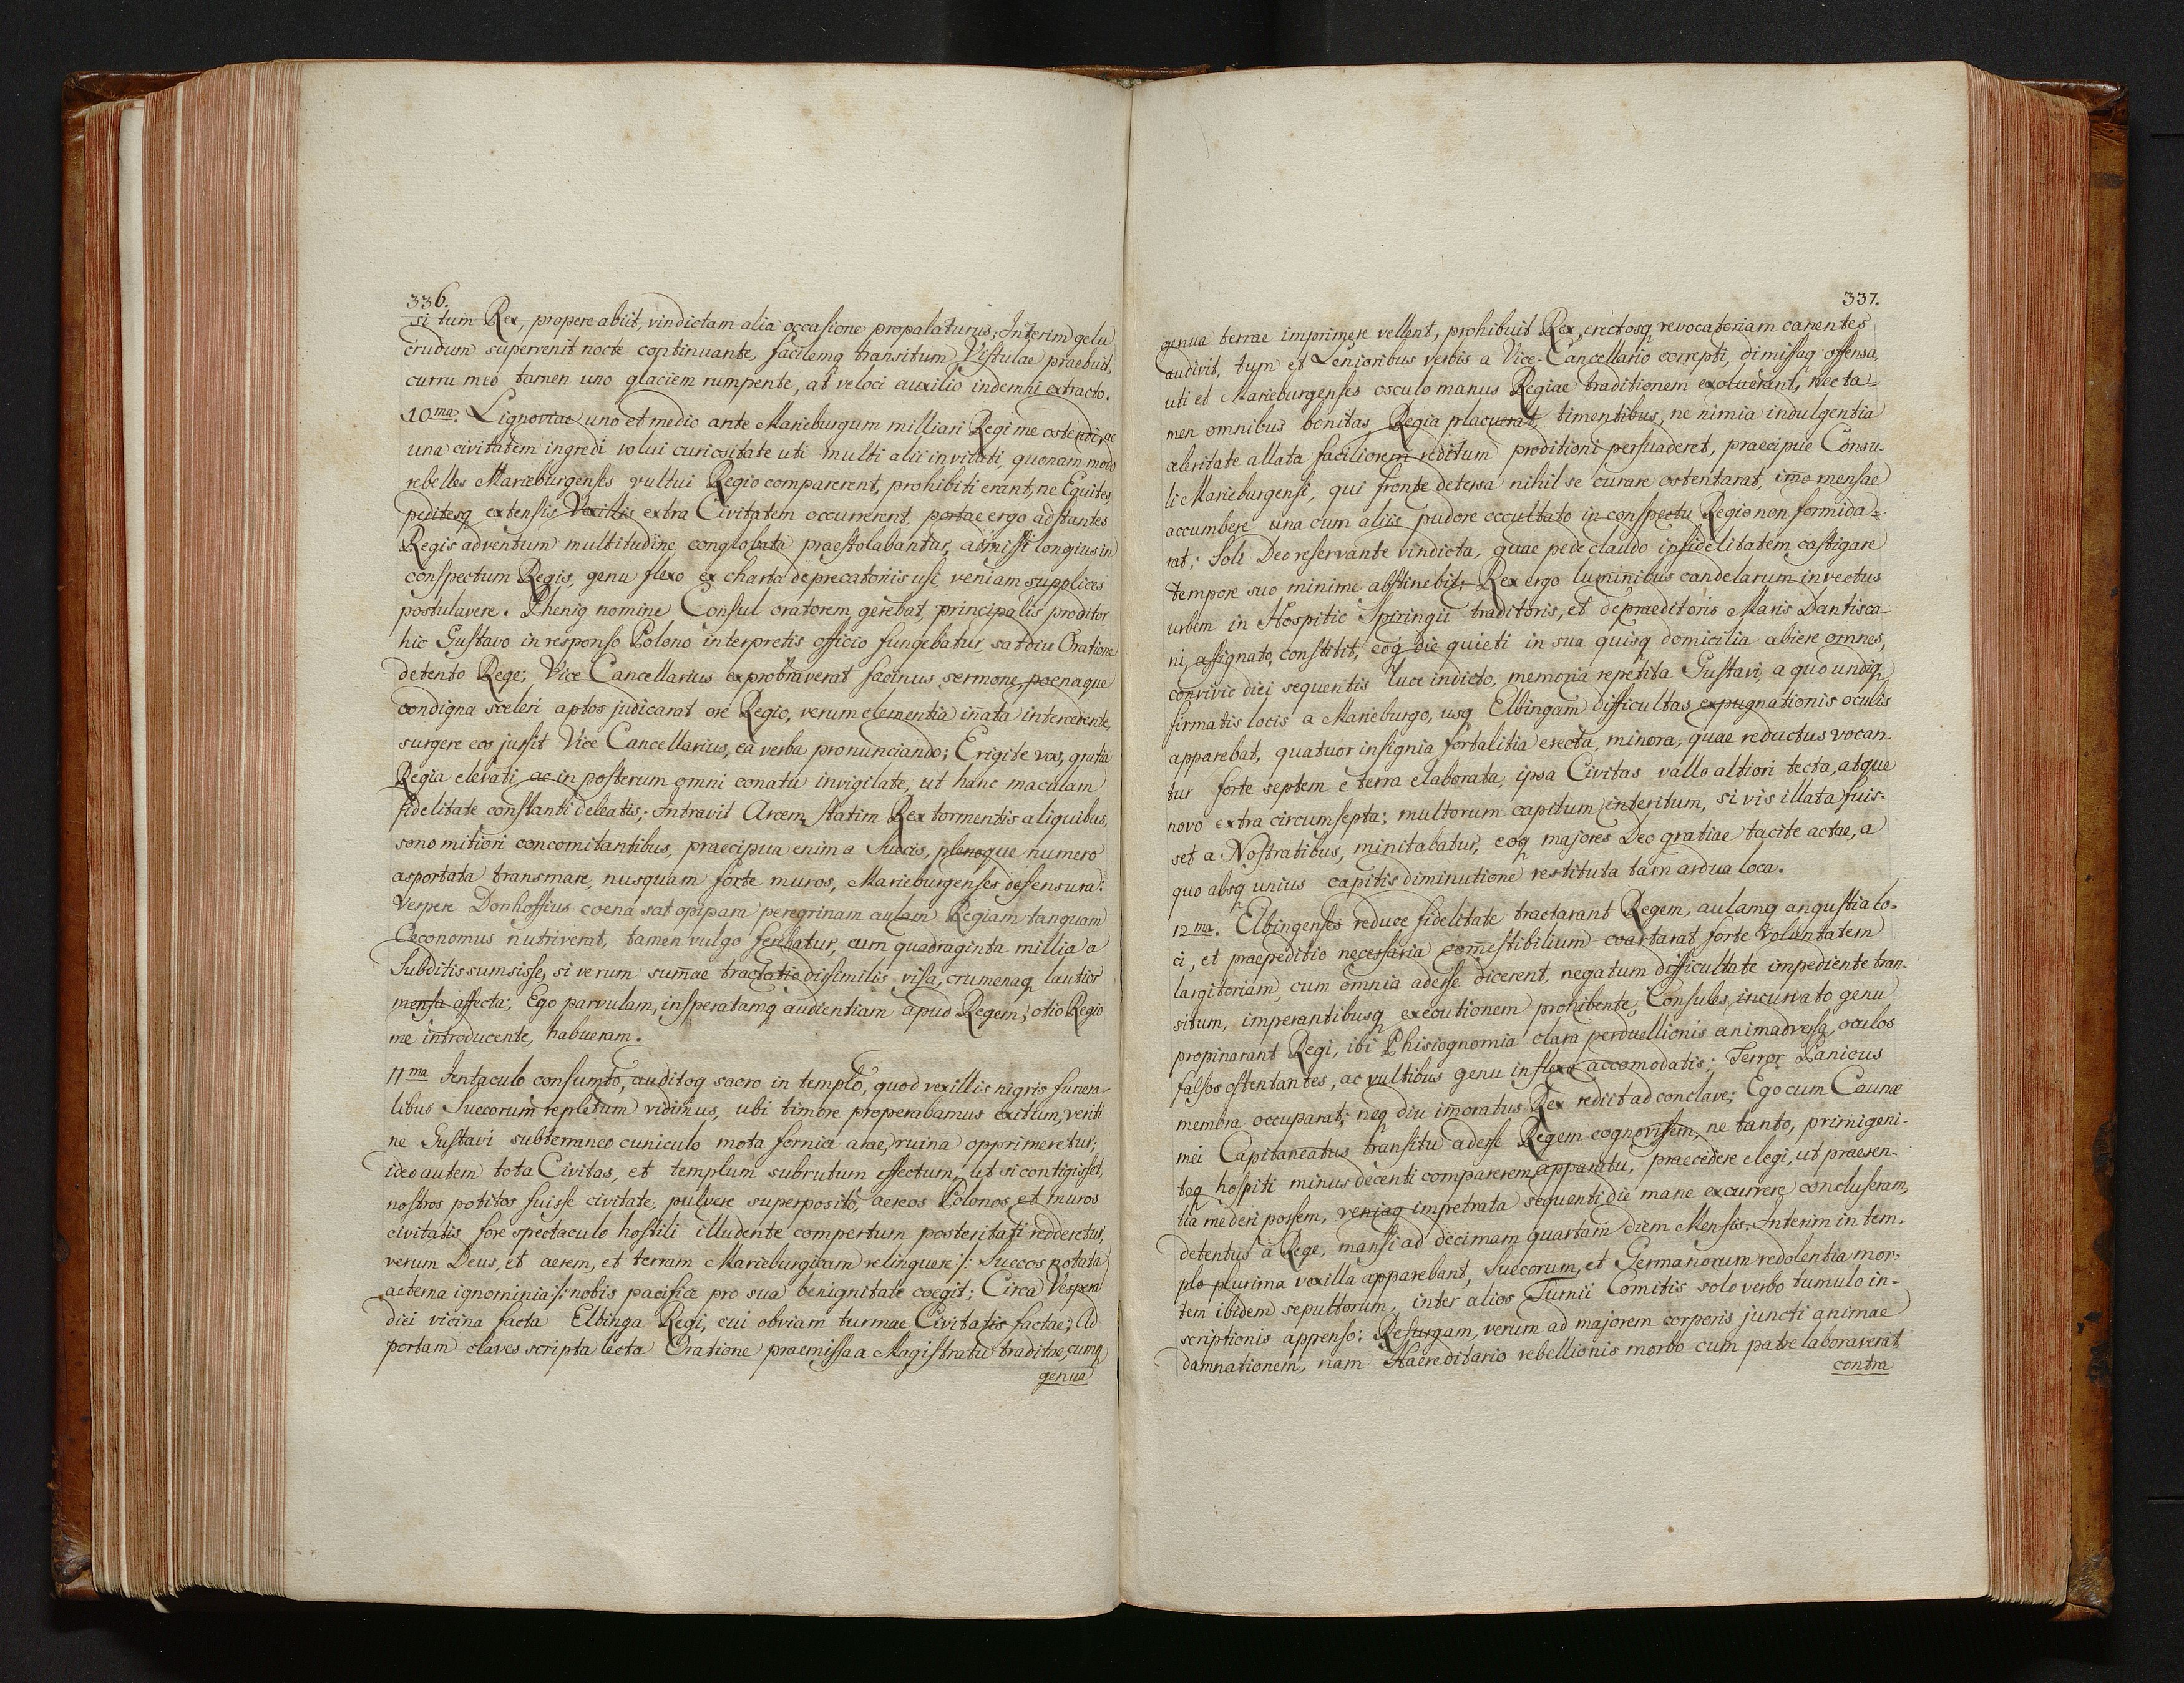 336.
si tum Rex, propere abiit, vindictam alia occasione propalaturus; Interim gelu
crudum supervenit nocte continuante, facilemq transitum Vistulae praebuit,
curru meo tamen uno glaciem rumpente, at veloci auxilio indemni extracto.
10ma. Lignoviae uno et medio ante Marieburgum milliari Regi me ostendi, ac
una civitatem ingredi volui curiositate uti multi alii invitati, quonam modo
rebelles Marieburgenses vultui Regio comparerent, prohibiti erant, ne Equites
peditesq extensis Vexillis extra Civitatem occurrerent, portae ergo adstantes
Regis adventum multitudine conglobata praestolabantur, admissi longius in
conspectum Regis, genu flexo ex charta deprecatoriis usi veniam supplices
postulavere. Rhenig nomine Consul oratorem gerebat, principalis proditor
hic Gustavo in responso Polono interpretis officio fungebatur, sat diu Oratione
detento Rege; Vice Cancellarius exprobraverat facinus sermone, poenaque
condigna sceleri aptos judicarat ore Regio, verum clementia iñata intercedente,
surgere eos jussit Vice Cancellarius, ea verba pronunciando; Erigite vos, gratia
Regia elevati ac in posterum omni conatu invigilate, ut hanc maculam
fidelitate constanti deleatis; Intravit Arcem statim Rex tormentis aliquibus,
sono mitiori concomitantibus, praecipua enim a Suecis, plenoque numero
asportata transmare, nusquam forte muros, Marieburgenses defensura:
Vespere Donhoffius coena sat opipara peregrinam aulam Regiam tanquam
Oeconomus nutriverat, tamen vulgo ferebatur, cum quadraginta millia a
Subditis sumsisse, si verum sum̃ae tractatio dissimilis visa, crumenaq lautior
mensa affecta; Ego parvulam, insperatamq audientiam apud Regem, otio Regio
me introducente, habueram.
11ma Jentaculo consumto, auditoq sacro in templo, quod vexillis nigris funera-
libus Suecorum repletum vidimus, ubi timore properabamus exitum, veriti
ne Gustavi subterraneo cuniculo mota fornice arae, ruina opprimeretur;
ideo autem tota Civitas, et templum subrutum effectum, ut si contigisset,
nostros potitos fuisse civitate, pulvere superposito, aereos Polonos et muros
civitatis fore spectaculo hostili illudente compertum posteritati redderetur,
verum Deus, et aerem, et terram Marieburgicam relinquere /: Suecos notata
aeterna ignominia :/: nobis pacifice pro sua benignitate coegit; Circa Vespera
diei vicina facta Elbinga Regi, cui obviam turmae Civitatis factae; Ad
portam claves scripta lecta Oratione praemissa a Magistratu traditae, cumq
genua
337.
genua terrae imprimere vellent, prohibuit Rex, erectosq revocatoriam canentes
audivit, tum et Lenioribus verbis a Vice-Cancellario correpti, dimissaq offensa,
uti et Marieburgenses osculo manus Regiae traditionem exoluerant, nec ta=
men omnibus bonitas Regia placuerat, timentibus, ne nimia indulgentia
celeritate allata faciliorem reditum proditioni persuaderet, praecipue Consu-
li Marieburgensi, qui fronte detersa nihil se curare ostentarat, im̃o mensae
accumbere una cum aliis pudore occultato in conspectu Regio non formida=
rat; Soli Deo reservante vindicta, quae pede claudo infidelitatem castigare
tempore suo minime abstinebit; Rex ergo luminibus candelarum invectus
urbem in Hospitio Spiringii traditoris, et depraeditoris Maris Dantisca-
ni, assignato, constitit, eoq die quieti in sua quisq domicilia abiere omnes,
convivio diei sequentis luce indicto, memoria repetita Gustavi, a quo undiq
firmatis locis a Marieburgo, usq Elbingam difficultas expugnationis oculis
apparebat, quatuor insignia fortalitia erecta, minora, quae reductus vocan-
tur forte septem e terra elaborata, ipsa Civitas vallo altiori tecta, atque
novo extra circumsepta; multorum capitum interitum, si vis illata fuis-
set a Nostratibus, minitabatur, eoq majores Deo gratiae tacite actae, a
quo absq unius capitis diminutione restituta tam ardua loca.
12ma. Elbingenses reduce fidelitate tractarant Regem, aulamq angustia lo-
ci, et praepeditio necessaria com̃estibilium coartarat forte voluntatem
largitoriam, cum omnia adesse dicerent, negatum difficultate impediente tran-
situm, imperantibusq executionem prohibente; Consules, incurvato genu
propinarant Regi, ibi Phisiognomia clara perduellionis animadversa, oculos
falsos ostentantes, ac vultibus genu inflexo accomodatis; Terror Panicus
membra occuparat; neq diu im̃oratus Rex rediit ad conclave; Ego cum Caunae
mei Capitaneatus transitu adesse Regem cognovissem, ne tanto, primigeni-
toq hospiti minus decenti comparerem apparatu, praecedere elegi, ut praesen-
tia mederi possem, veniaq impetrata sequenti die mane excurrere concluseram,
detentus a Rege, mansi ad decimam quartam diem Mensis. Interim in tem-
plo plurima vexilla apparebant, Suecorum, et Germanorum redolentia mor-
tem ibidem sepultorum, inter alios Turnii Comitis solo verbo tumulo in-
scriptionis appenso: Resurgam, verum ad majorem corporis juncti animae
damnationem, nam Haereditario rebellionis morbo cum patre laboraverat,
contra